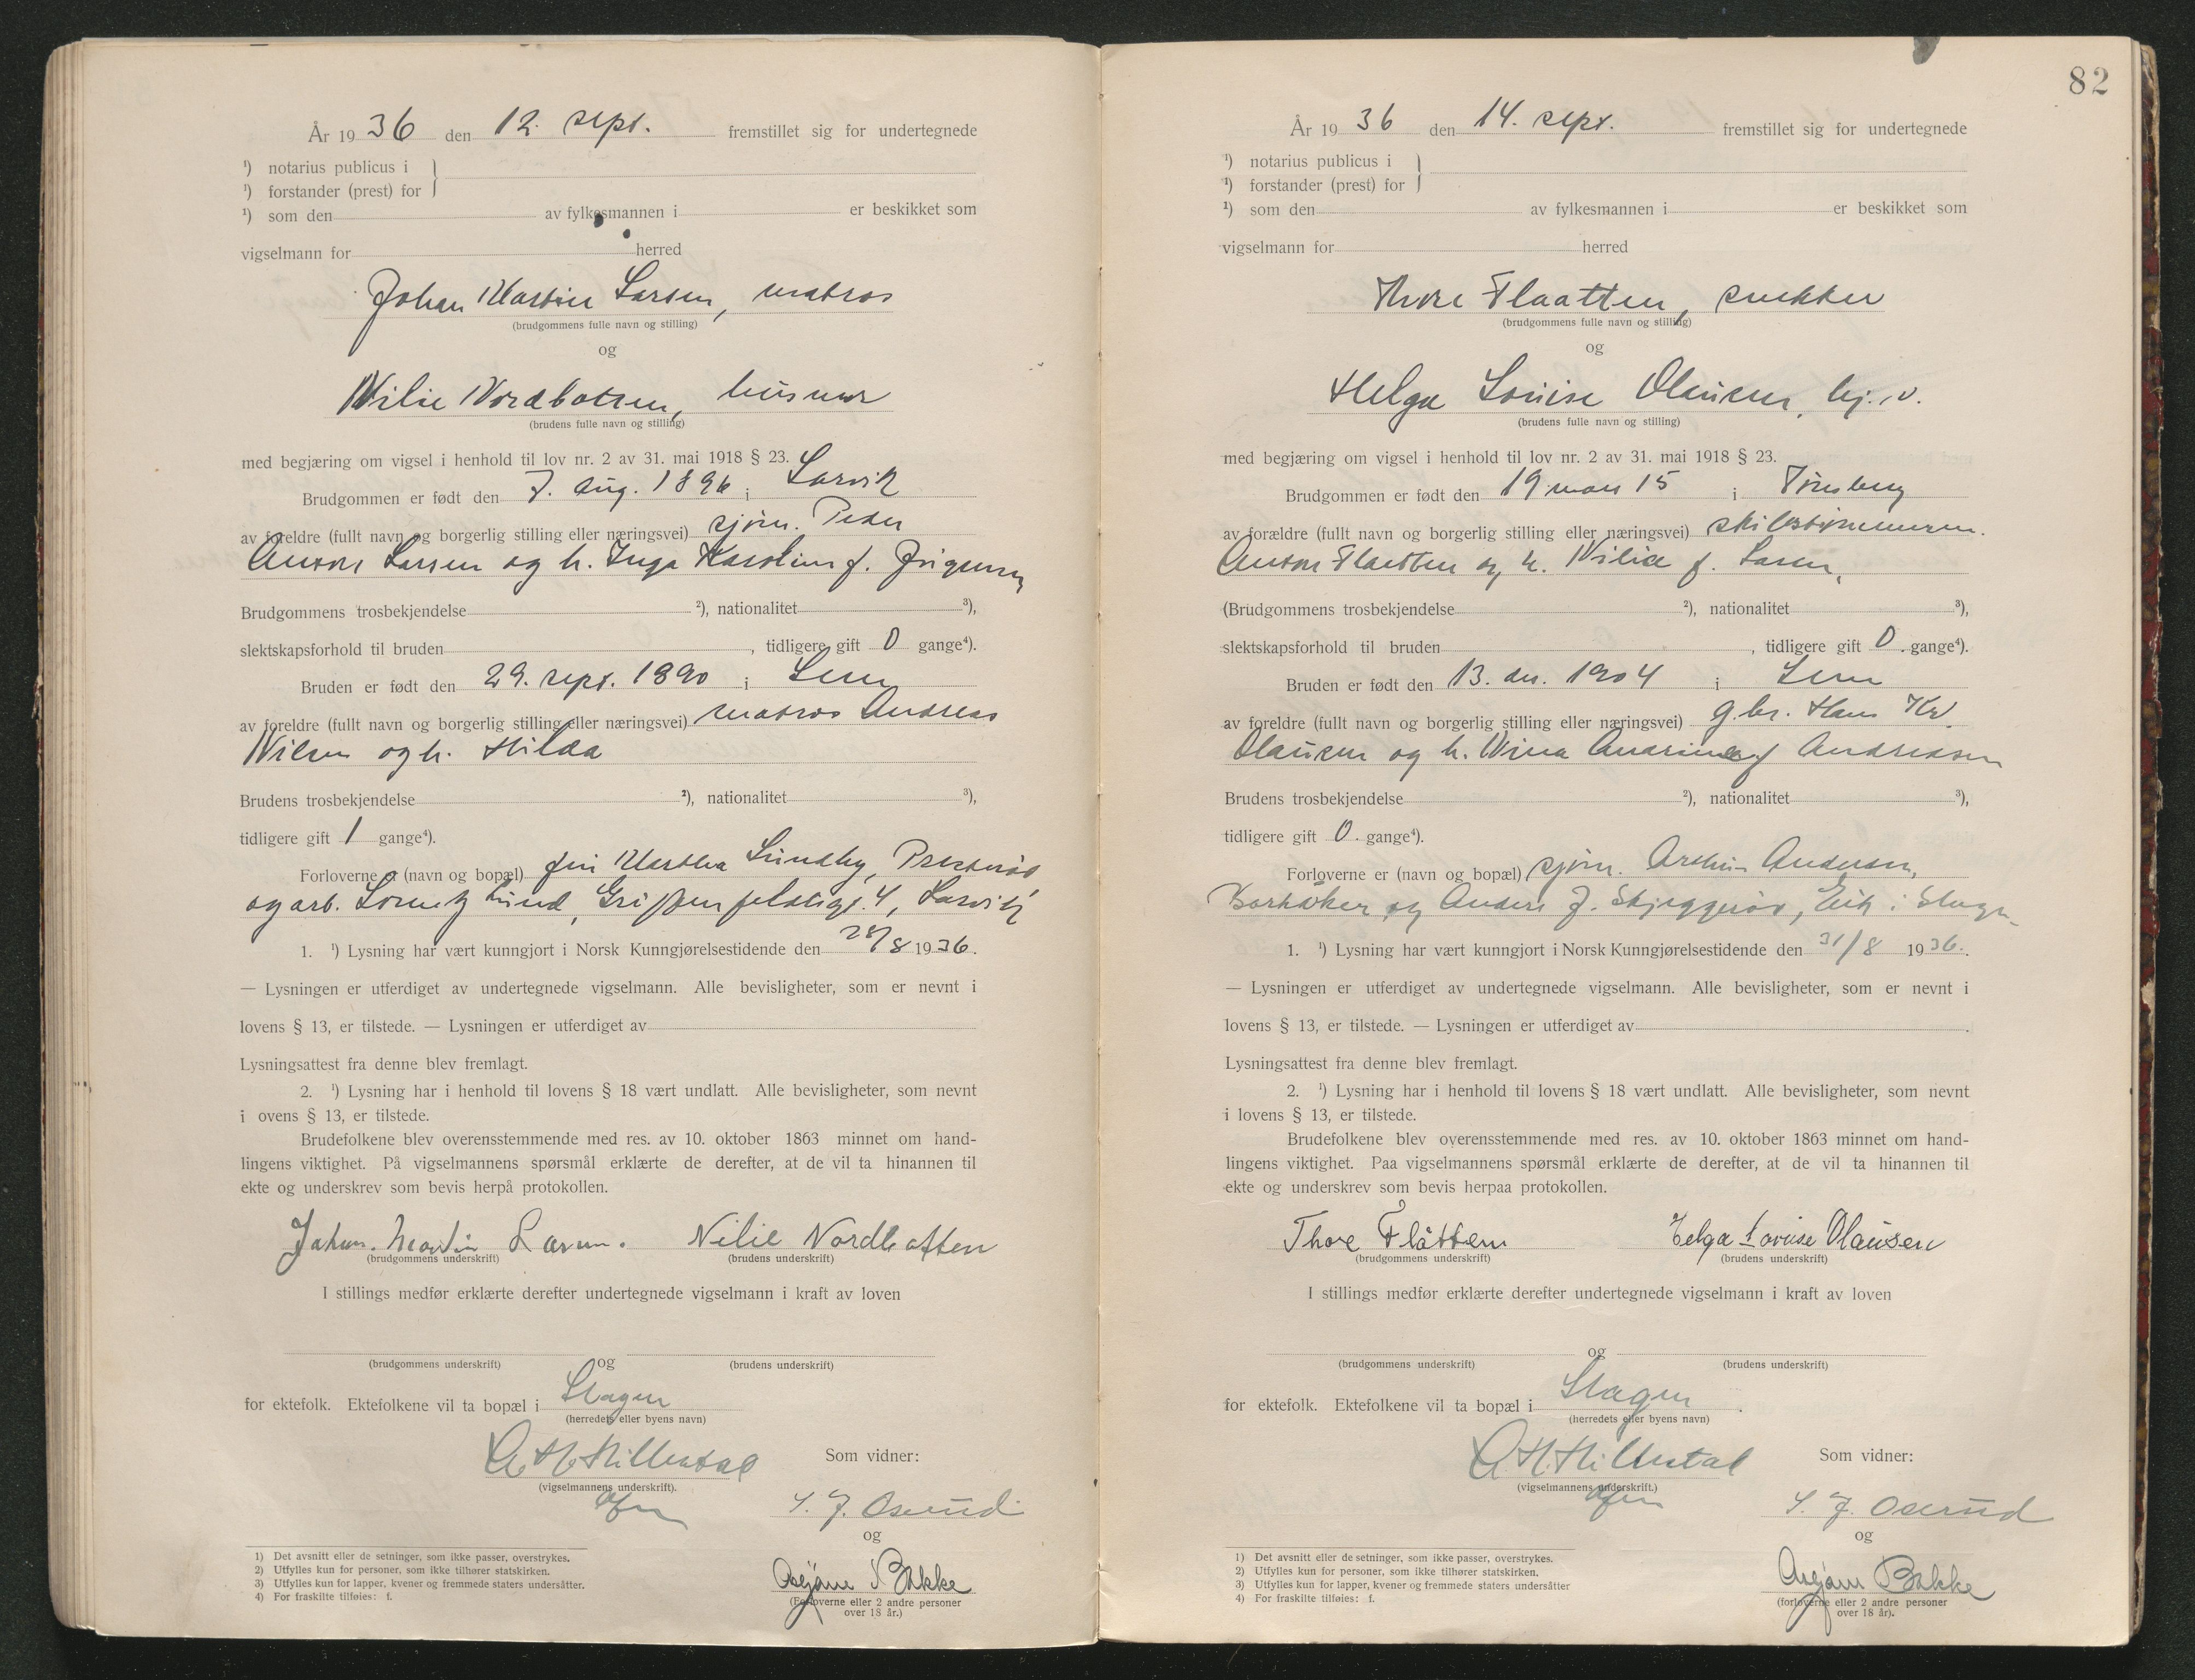 År 1936 den 12. sept. fremstillet sig for undertegnede
¹) notarius publicus i
¹) forstander (prest) for
¹) som den av fylkesmannen i er beskikket som
vigselmann for herred
Johan Martin Larsen, matros
(brudgommens fulle navn og stilling)
og
Nilie Nordbotten, husmor
(brudens fulle navn og stilling)
med begjæring om vigsel i henhold til lov nr. 2 av 31. mai 1918 § 23.
Brudgommen er født den 7. aug. 1896 i Larvik
av foreldre (fullt navn og borgerlig stilling eller næringsvei) sjøm. Peder
Anton Larsen og h. Inga Karoline f.
Brudgommens trosbekjendelse ²), nationalitet ³),
slektskapsforhold til bruden , tidligere gift 0 gange⁴).
Bruden er født den 29. sept. 1890 i Sem
av foreldre (fullt navn og borgerlig stilling eller næringsvei) matros Andreas
Nilsen og h. Hilda
Brudens trosbekjendelse ²), nationalitet ³),
tidligere gift 1 gange⁴).
Forloverne er (navn og bopæl) fru Martha Sundby, Presterød
og arb. Lorentz Lund, Griffenfeldtsgt. 4, Larvik
1. ¹) Lysning har vært kunngjort i Norsk Kunngjørelsestidende den 28/8 1936.
— Lysningen er utferdiget av undertegnede vigselmann. Alle bevisligheter, som er nevnt i
lovens § 13, er tilstede. — Lysningen er utferdiget av
Lysningsattest fra denne blev fremlagt.
2. ¹) Lysning har i henhold til lovens § 18 vært undlatt. Alle bevisligheter, som nevnt
i ovens § 13, er tilstede.
Brudefolkene blev overensstemmende med res. av 10. oktober 1863 minnet om hand-
lingens viktighet. På vigselmannens spørsmål erklærte de derefter, at de vil ta hinannen til
ekte og underskrev som bevis herpå protokollen.
Johan. Martin Larsen. Nilie Nordbotten
(brudgommens underskrift) (brudens underskrift)
I stillings medfør erklærte derefter undertegnede vigselmann i kraft av loven
og
(brudgommens underskrift) (brudens underskrift)
for ektefolk. Ektefolkene vil ta bopæl i Slagen
(herredets eller byens navn)
A. H. Hillestad
Som vidner:
(vigselmannens underskrift).
S. J. Oserud
og
Asbjørn Bakke
(Forloverne eller 2 andre personer
over 18 år.)
1) Det avsnitt eller de setninger, som ikke passer, overstrykes.
2) Utfylles kun for personer, som ikke tilhører statskirken.
3) Utfylles kun for lapper, kvener og fremmede staters undersåtter.
4) For fraskilte tilføies: f.
82
År 1936 den 14. sept. fremstillet sig for undertegnede
¹) notarius publicus i
¹) forstander (prest) for
¹) som den av fylkesmannen i er beskikket som
vigselmann for herred
Thore Flaatten, snekker
(brudgommens fulle navn og stilling)
og
Helga Louise Olausen, hj.v.
(brudens fulle navn og stilling)
med begjæring om vigsel i henhold til lov nr. 2 av 31. mai 1918 § 23.
Brudgommen er født den 19 mars 15 i Tønsberg
av forældre (fullt navn og borgerlig stilling eller næringsvei) skibstømmerm.
Anton Flaatten og h. Nilia f. Larsen,
(Brudgommens trosbekjendelse ²), nationalitet ³),
slektskapsforhold til bruden , tidligere gift 0. gange⁴).
Bruden er født den 13. des. 1904 i Sem
av foreldre (fullt navn og borgerlig stilling eller næringsvei) g.br. Hans Kr.
Olausen og h. Nina Andrine f Andreasen
Brudens trosbekjendelse ²), nationalitet ³),
tidligere gift 0. gange⁴).
Forloverne er (navn og bopæl) sjøm. Arthur Andersen,
Barkåker og Anders J. Skjeggerød, Eik i Slagen
1. ¹) Lysning har vært kunngjort i Norsk Kunngjørelsestidende den 31/8 1936.
— Lysningen er utferdiget av undertegnede vigselmann. Alle bevisligheter, som er nevnt i
lovens § 13, er tilstede. — Lysningen er utferdiget av .
Lysningsattest fra denne blev fremlagt.
2. ¹) Lysning har i henhold til lovens § 18 vært undlatt. Alle bevisligheter, som nevnt
i lovens § 13, er tilstede.
Brudefolkene blev overensstemmende med res. av 10. oktober 1863 minnet om hand-
lingens viktighet. Paa vigselmannens spørsmål erklærte de derefter, at de vil ta hinannen til
ekte og underskrev som bevis herpaa protokollen.
Thore Flåtten Helga Lovise Olausen
(brudgommens underskrift) (brudens underskrift)
I stillings medfør erklærte derefter undertegnede vigselmann i kraft av loven
og
(brudgommens underskrift) (brudens underskrift)
for ektefolk. Ektefolkene vil ta bopæl i Slagen .
(herredets eller byens navn)
A. H. Hillestad
Som vidner:
(vigselmannens underskrift.)
S. J. Oserud
og
Asbjørn Bakke
(forloverne eller 2 andre personer
over 18 år).
1) Det avsnitt eller de setninger, som ikke passer, overstrykes.
2) Utfylles kun for personer, som ikke tilhører statskirken.
3) Utfylles kun for lapper, kvener og fremmede staters undersåtter
4) For fraskilte tilføies: f.